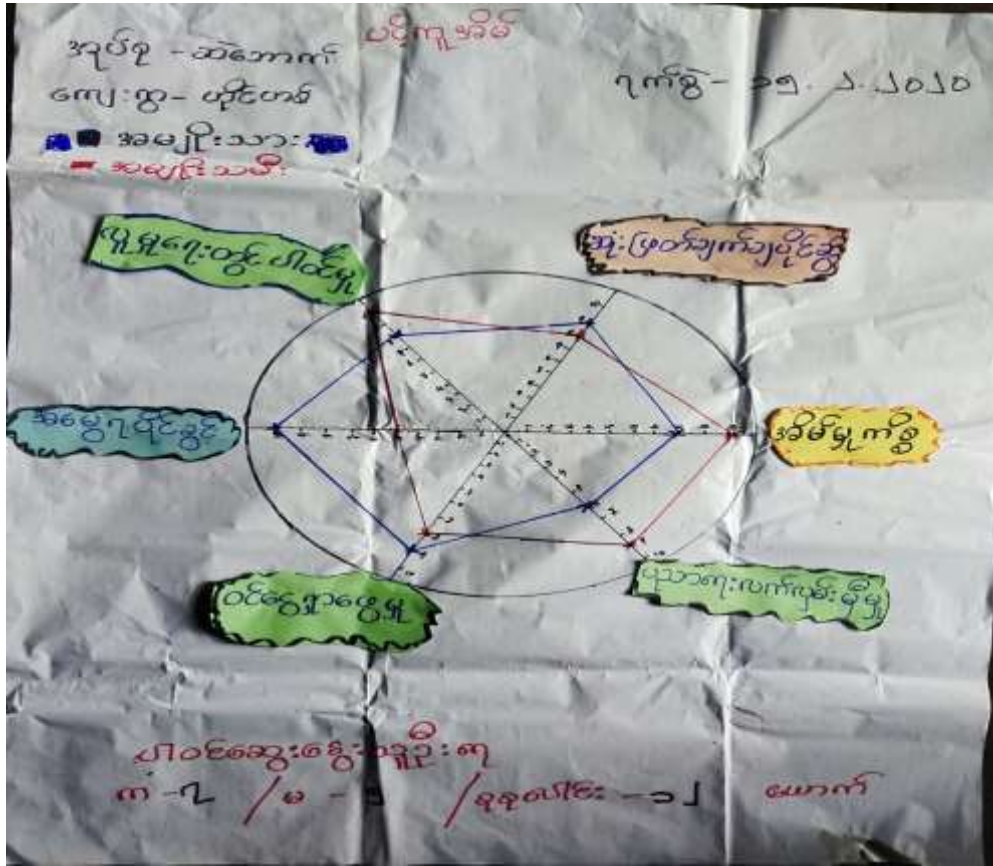 ပင့်ကူအိမ်
အုပ်စု - ဆဲဘောက်
ကျေးရွာ - ဟိုင်ဟစ်
ရက်စွဲ - ၁၅.၂.၂၀၂၀
အမျိုးသား
အမျိုးသမီး
လူမှုရေးတွင်ပါဝင်မှု
ဆုံးဖြတ်ချက်ချပိုင်ဆွ
အမွေရပိုင်ခွင့်
အိမ်မှုကိစ္စ
ဝင်ငွေရှာဖွေမှု
ပညာရေးလက်လှမ်းမှီမှု
ပါဝင်ဆွေးနွေးသူဦးရေ
ကျား - ၇ / မ - ၅ / စုစုပေါင်း - ၁၂ ယောက်